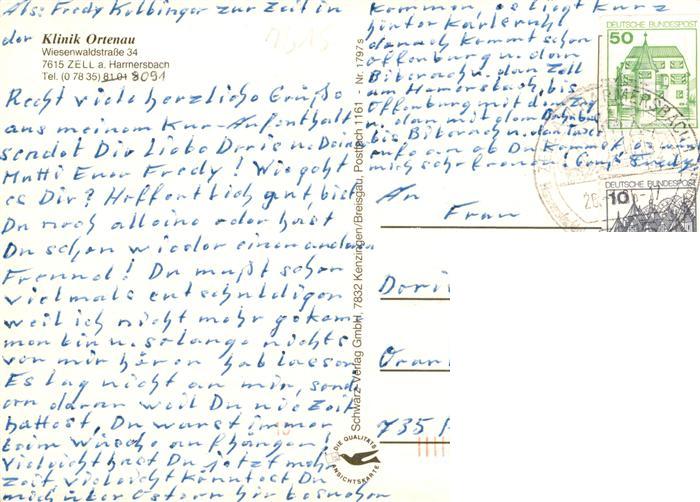 Als: Fredy Kolbinger zur Zeit in
der Klinik Ortenau
Wiesenwaldstraße 34
7615 ZELL a. Harmersbach
Tel. (0 78 35) 81 01 8091
Recht viele herzliche Grüße
aus meinem Kur-Aufenthalt
sendet Dir Liebe Doris u. Deine
Mutti Euer Fredy! Wie geht
es Dir? Hoffentlich gut, bist
Du noch alleine oder hast
Du schon wieder einen anderen
Freund! Du mußt schon
vielmals entschuldigen
weil ich nicht mehr gekom
men bin u. solange nichts
von mir hören hab lassen
Es lag nicht an mir, sond
ern daran weil Du nie Zeit
hattest, Du warst immer
beim Wäsche aufhängen!
Vielleicht hast Du jetzt mehr
Zeit vielleicht könntest Du
mich über Ostern hier besuchen
kommen, es liegt kurz
hinter Karlsruh
danach kommt schon
Offenburg u. dann
Biberach u. dann Zell
am Hamersbach, bis
Offenburg mit dem Zug
u. dann mit dem
bis Biberach u. dann
ob Du kommst
mich sehr freuen! Gruß Fredy
An
Frau
Dori
Oran
735
Schwarz-Verlag GmbH, 7832 Kenzingen/Breisgau, Postfach 1161 - Nr. 1797 s
DIE QUALITÄTS
ANSICHTSKARTE
DEUTSCHE BUNDESPOST
50
DEUTSCHE BUNDESPOST
10